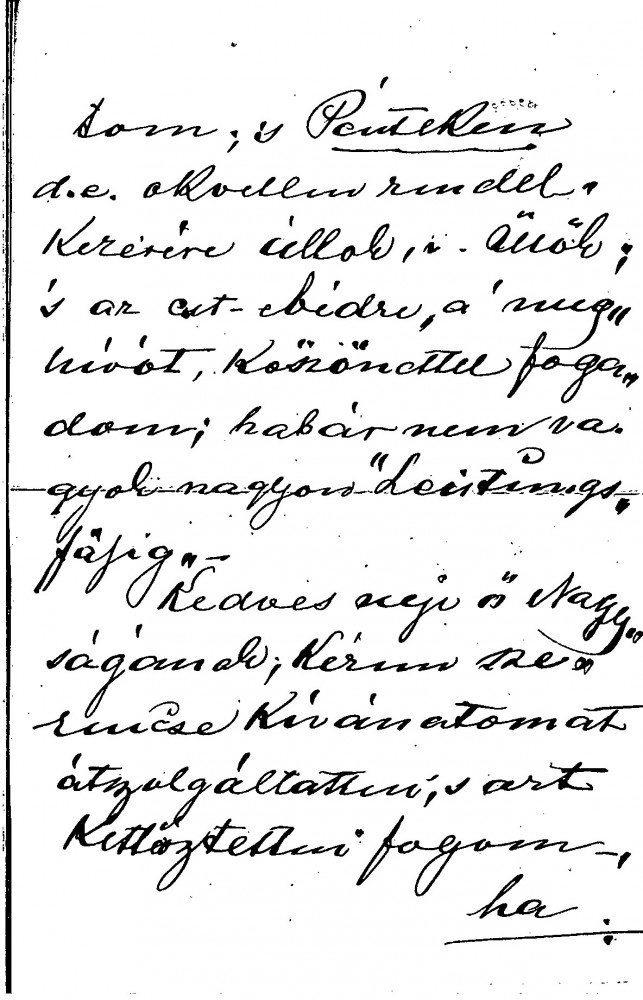 tom; 's Pénteken
d.e. okvetlen rendel„
kezésére állok, 
's az est-ebédre, a' meg„
hívót, köszönettel foga„
dom; habár nem va„
gyok nagyon "Leistungs„
fähig„ –
Kedves neje ő Nagy„
ságának, kérem sze„
rencse kívánatomat
átszolgáltatni, 's azt
Kettőztetni fogom –,
ha :